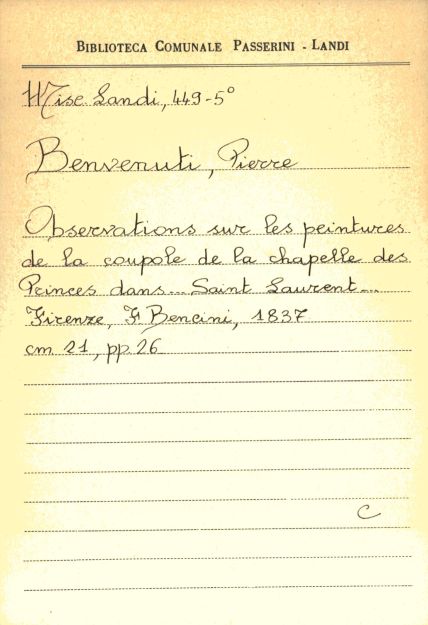 BIBLIOTECA COMUNALE PASSERINI - LANDI
Misc. Landi, 449-5°
Benvenuti, Pierre
Observations sur les peintures
de la coupole de la chapelle des
Princes dans... Saint Laurent...
Firenze, F. Bencini, 1837
cm 21, pp. 26
C